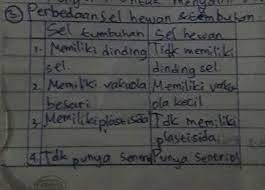 ③ Perbedaan sel hewan & tumbuhan
Sel tumbuhan Sel hewan
1. Memiliki dinding Tidk memiliki
sel. dinding sel.
2. Memiliki vakuola Memiliki vakuo
besar ola kecil
3. Memiliki plastisida Tdk memiliki
plastisida
4. Tdk punya Punya sentriol